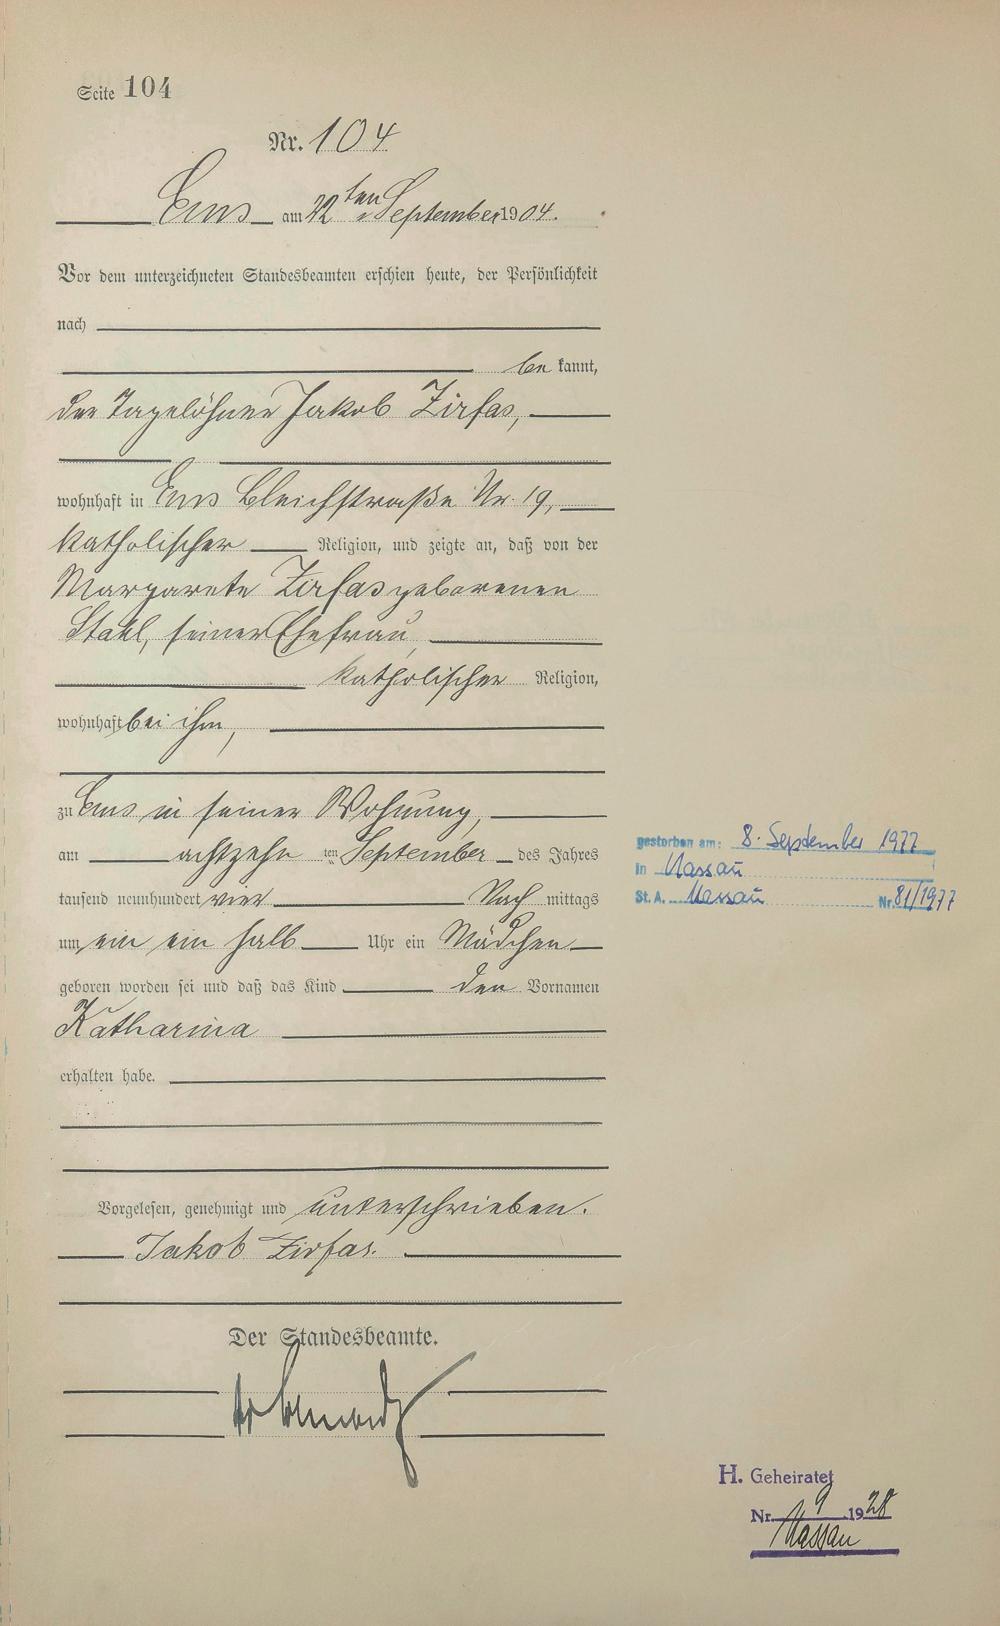 Seite 104
Nr. 104
Ems am 22ten September 1904.
Vor dem unterzeichneten Standesbeamten erschien heute, der Persönlichkeit
nach
bekannt,
der Tagelöhner Jakob Zirfas,
wohnhaft in Ems Bleichstraße Nr. 19,
katholischer Religion, und zeigte an, daß von der
Margarete Zirfas geborenen
Stahl, seiner Ehefrau,
katholischer Religion,
wohnhaft bei ihm,
zu Ems in seiner Wohnung,
am achtzehn ten September des Jahres
tausend neunhundert vier Nach mittags
um ein ein halb Uhr ein Mädchen
geboren worden sei und daß das Kind den Vornamen
Katharina
erhalten habe.
Vorgelesen, genehmigt und unterschrieben.
Jakob Zirfas.
Der Standesbeamte.
gestorben am: 8. September 1977
in Nassau
St. A. Nassau Nr. 81/1977
H. Geheiratet
Nr. 9 1928
Nassau